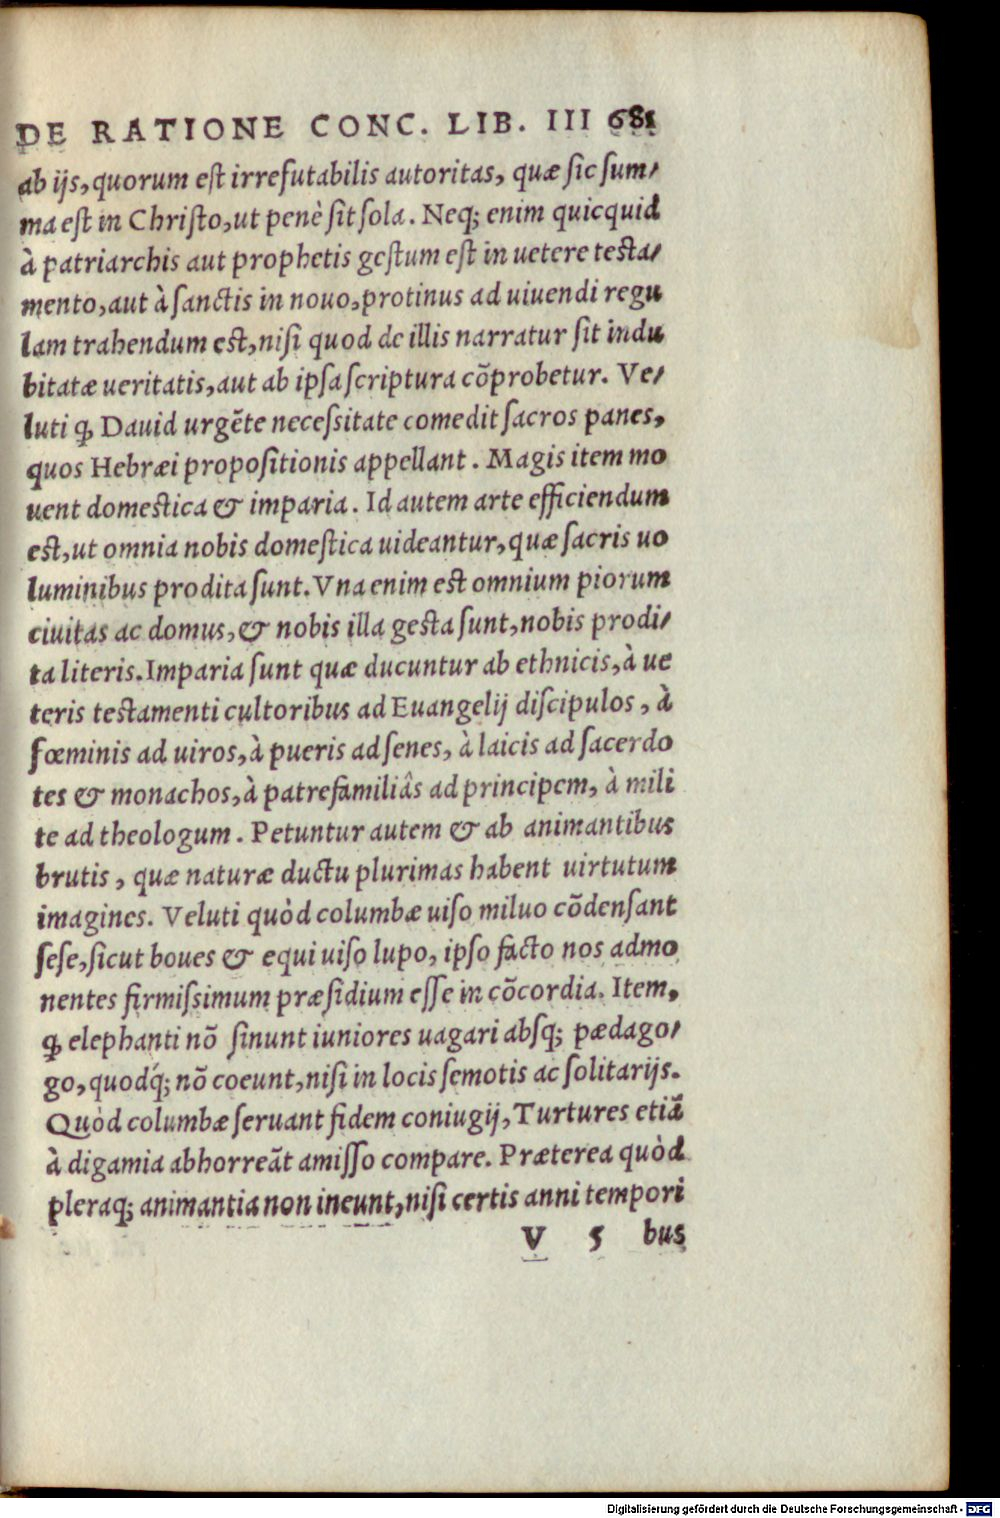 DE RATIONE CONC. LIB. III 681
ab ijs, quorum est irrefutabilis autoritas, quæ sic sum/
ma est in Christo, ut penè sit sola. Neq; enim quicquid
à patriarchis aut prophetis gestum est in uetere testa/
mento, aut à sanctis in nouo, protinus ad uiuendi regu
lam trahendum est, nisi quod de illis narratur sit indu
bitatæ ueritatis, aut ab ipsa scriptura cõprobetur. Ve/
luti ꝙ Dauid urgẽte necessitate comedit sacros panes,
quos Hebræi propositionis appellant. Magis item mo
uent domestica & imparia. Id autem arte efficiendum
est, ut omnia nobis domestica uideantur, quæ sacris uo
luminibus prodita sunt. Vna enim est omnium piorum
ciuitas ac domus, & nobis illa gesta sunt, nobis prodi/
ta literis. Imparia sunt quæ ducuntur ab ethnicis, à ue
teris testamenti cultoribus ad Euangelij discipulos, à
fœminis ad uiros, à pueris ad senes, à laicis ad sacerdo
tes & monachos, à patrefamiliâs ad principem, à mili
te ad theologum. Petuntur autem & ab animantibus
brutis, quæ naturæ ductu plurimas habent uirtutum
imagines. Veluti quòd columbæ uiso miluo cõdensant
sese, sicut boues & equi uiso lupo, ipso facto nos admo
nentes firmissimum præsidium esse in cõcordia. Item,
ꝙ elephanti nõ sinunt iuniores uagari absq; pædago/
go, quodq́; nõ coeunt, nisi in locis semotis ac solitarijs.
Quòd columbæ seruant fidem coniugij, Turtures etiã
à digamia abhorreãt amisso compare. Præterea quòd
pleraq; animantia non ineunt, nisi certis anni tempori
V 5 bus
Digitalisierung gefördert durch die Deutsche Forschungsgemeinschaft - DFG